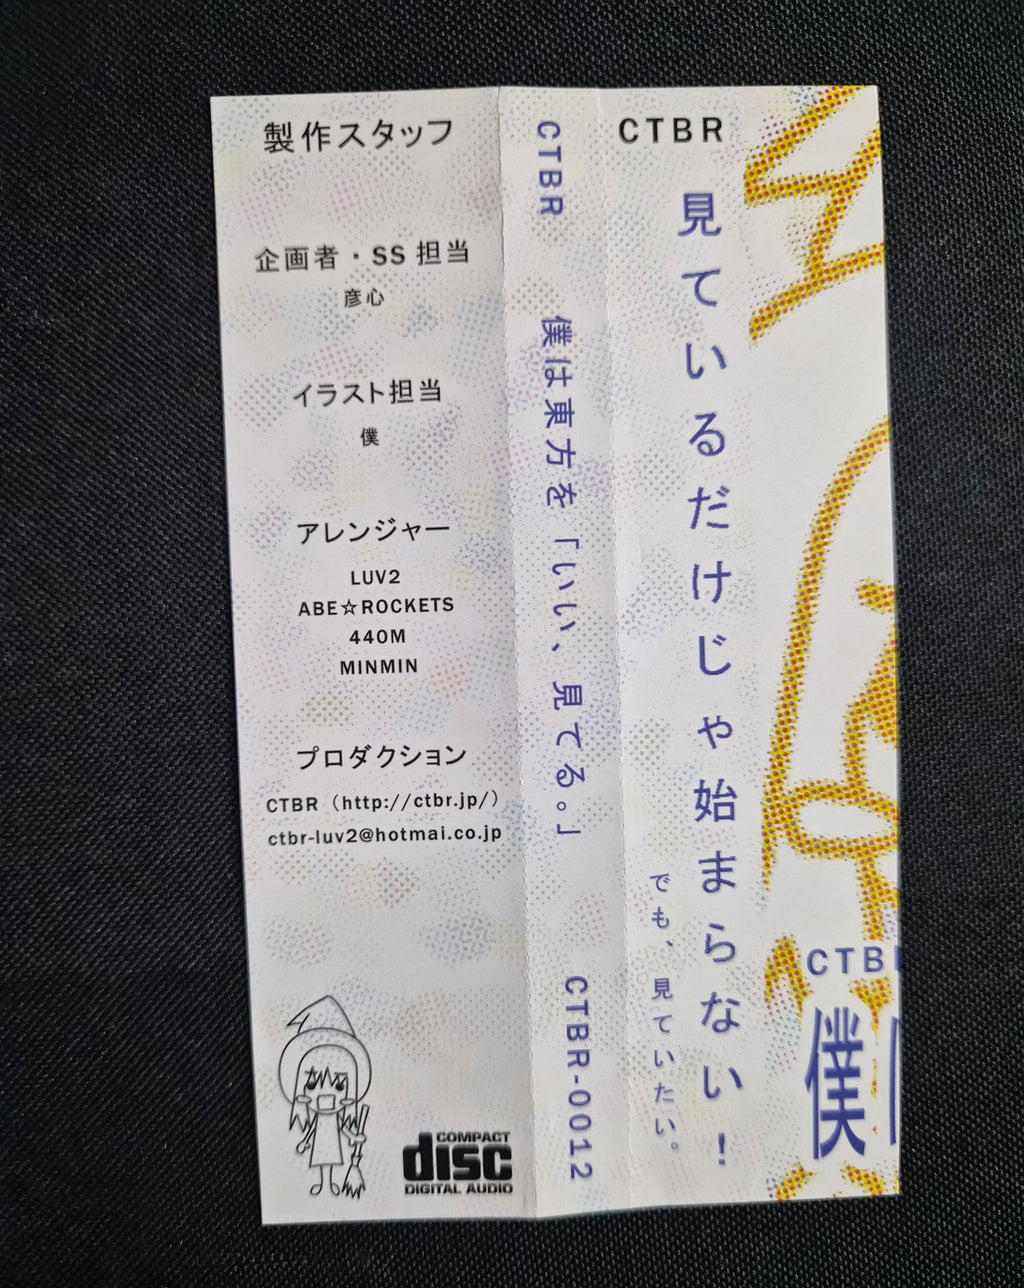 製作スタッフ
企画者・SS担当
彦心
イラスト担当
僕
アレンジャー
LUV2
ABE☆ROCKETS
440M
MINMIN
プロダクション
CTBR（http://ctbr.jp/）
ctbr-luv2@hotmai.co.jp
COMPACT
disc
DIGITAL AUDIO
CTBR
僕は東方を「いい、見てる。」
CTBR-0012
CTBR
見ているだけじゃ始まらない！
でも、見ていたい。
CTB
僕